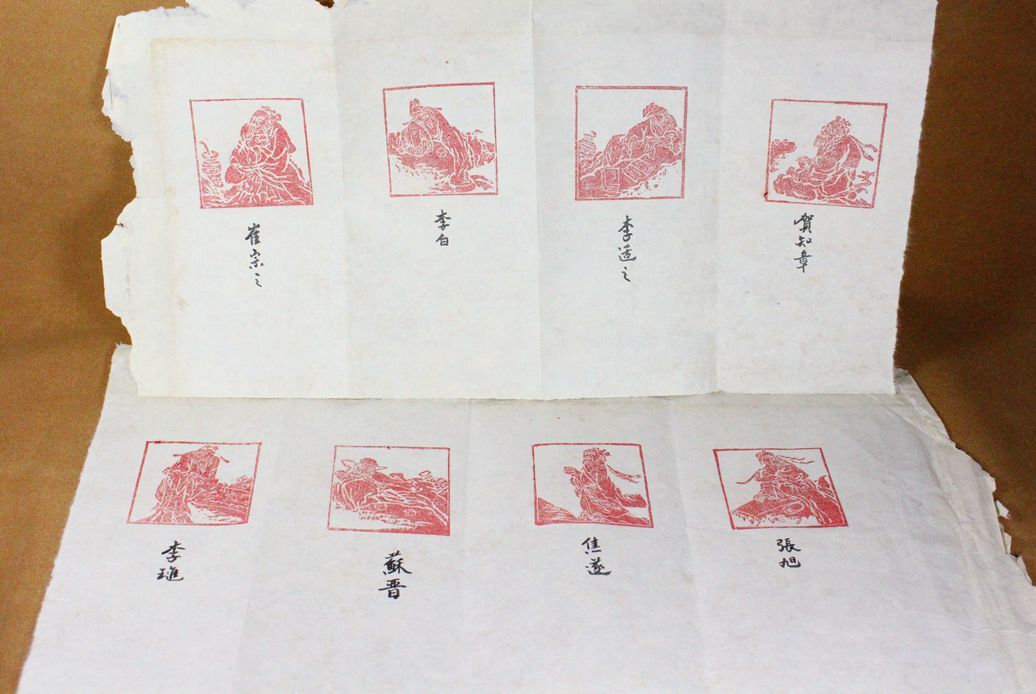 賀知章
李適之
李白
崔宗之
張旭
焦遂
蘇晋
李璡